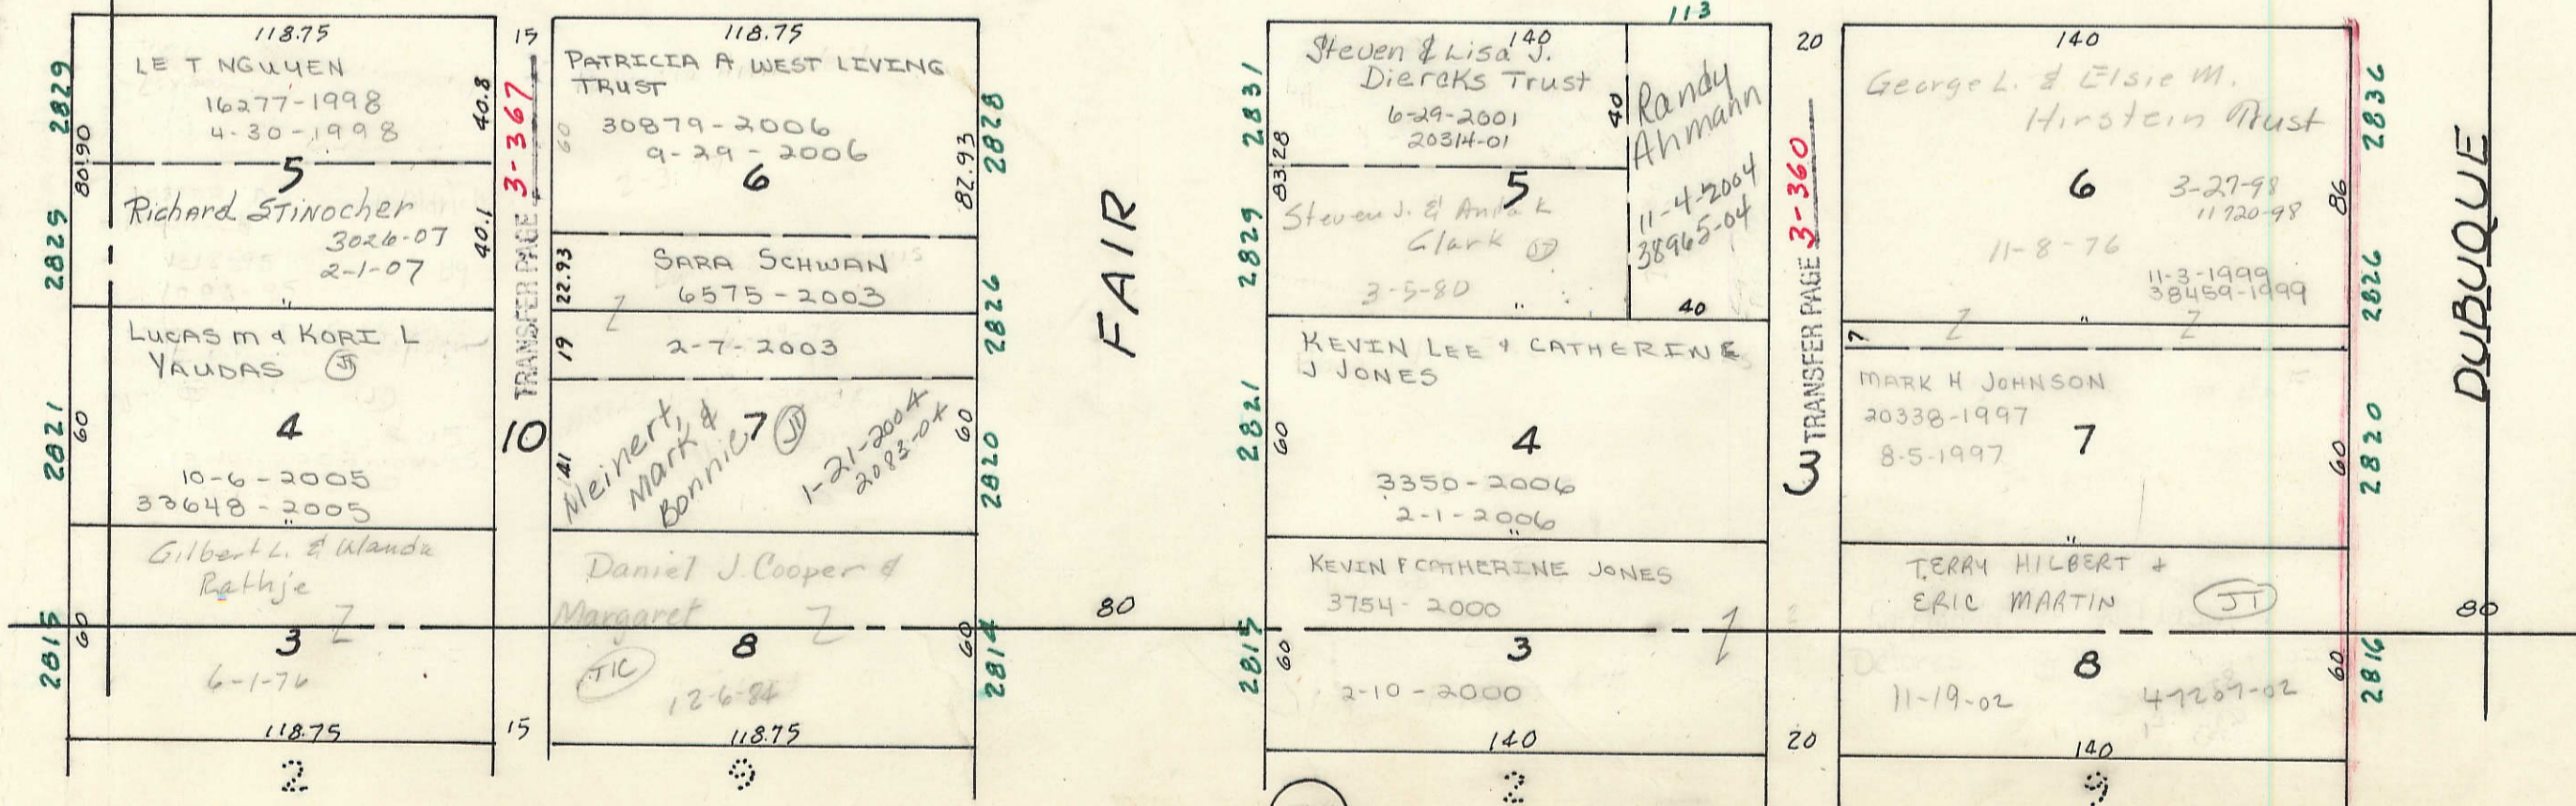 118.75
LE T NGUYEN
16277-1998
4-30-1998
2829
80.90
40.8
5
Richard Stinocher
3026-07
2-1-07
2825
40.1
"
LUCAS M & KORI L
YAUDAS JT
4
10-6-2005
33648-2005
"
2821
60
Gilbert L. & Wanda
Rathje
Z
3
6-1-76
2815
60
118.75
2
15
TRANSFER PAGE 3-367
10
15
118.75
PATRICIA A WEST LIVING
TRUST
30879-2006
9-29-2006
60
6
82.93
2828
SARA SCHWAN
6575-2003
22.93
Z
2826
19
2-7-2003
Meinert,
Mark &
Bonnie
7 JT
1-21-2004
2083-04
41
60
2820
Daniel J. Cooper &
Margaret
Z
8
TIC
12-6-84
60
2814
118.75
9
FAIR
80
113
140
Steven & Lisa J.
Diercks Trust
6-29-2001
20314-01
2831
83.28
40
Randy
Ahmann
11-4-2004
38965-04
40
5
Steven J. & Anita K
Clark JT
3-5-80
"
2829
KEVIN LEE & CATHERINE
J JONES
4
3350-2006
2-1-2006
"
2821
60
KEVIN & CATHERINE JONES
3754-2000
3
2-10-2000
2815
60
140
2
20
3 TRANSFER PAGE 3-360
20
140
George L. & Elsie M.
Hirstein Trust
6
3-27-98
11720-98
11-8-76
11-3-1999
38459-1999
86
2836
2826
"
Z
Z
7
MARK H JOHNSON
20338-1997
8-5-1997
7
"
60
2820
TERRY HILBERT &
ERIC MARTIN
JT
8
11-19-02
47207-02
60
2816
140
9
DUBUQUE
80